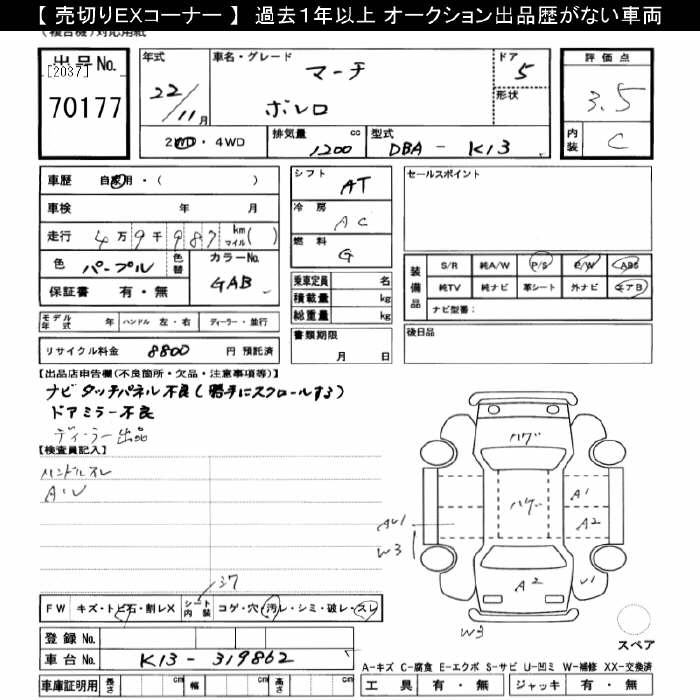 【 売切りEXコーナー 】 過去1年以上 オークション出品歴がない車両
(複合機)対応用紙
出品No. [2037] 70177
年式 22/11月
車名・グレード マーチ ボレロ
ドア 5
形状
評価点 3.5
内装 C
2WD・4WD
排気量 1200 cc
型式 DBA - K13
車歴 自家用・( )
車検 年 月
走行 4万9千987 km マイル( )
色 パープル 色替
カラーNo. GAB
保証書 有・無
シフト AT
冷房 AC
燃料 G
乗車定員 名
積載量 kg
総重量 kg
セールスポイント
装備品 S/R 純A/W P/S P/W ABS
純TV 純ナビ 革シート 外ナビ エアB
ナビ型番:
モデル年式 年 ハンドル 左・右 ディーラー・並行
リサイクル料金 8800 円 預託済
書類期限 月 日
後日品
【出品店申告欄(不良箇所・欠品・注意事項等)】
ナビ タッチパネル不良(勝手にスクロールする)
ドアミラー不良
ディーラー出品
【検査員記入】
ハンドルスレ
A・U
ハゲ
ハゲ
A1
A2
AU1
W3
A2
U1
W3
FW キズ・トビ石・割レX シート内装 コゲ・穴・汚レ・シミ・破レ・スレ
登録 No.
車台 No. K13-319862
スペア
A-キズ C-腐食 E-エクボ S-サビ U-凹ミ W-補修 XX-交換済
車庫証明用 長さ cm 幅 cm 高さ cm
工具 有・無 ジャッキ 有・無